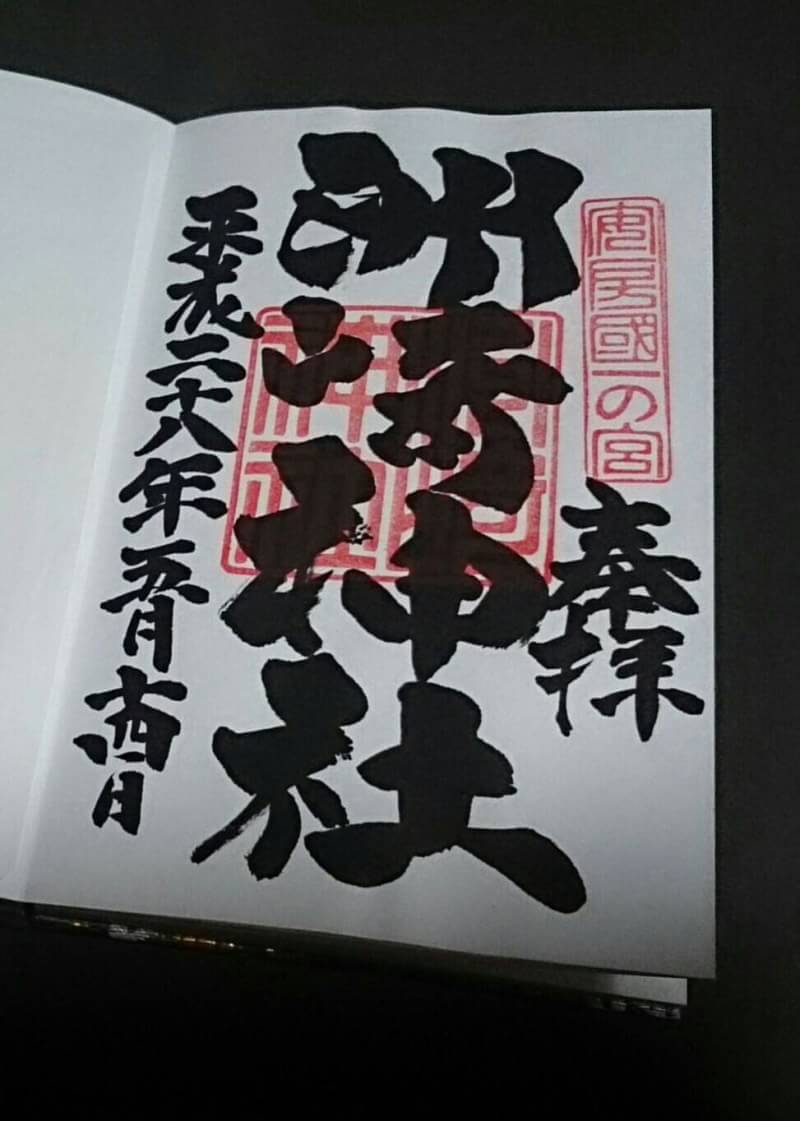 安房國一の宮
奉拝
洲崎神社
平成二十八年五月十四日